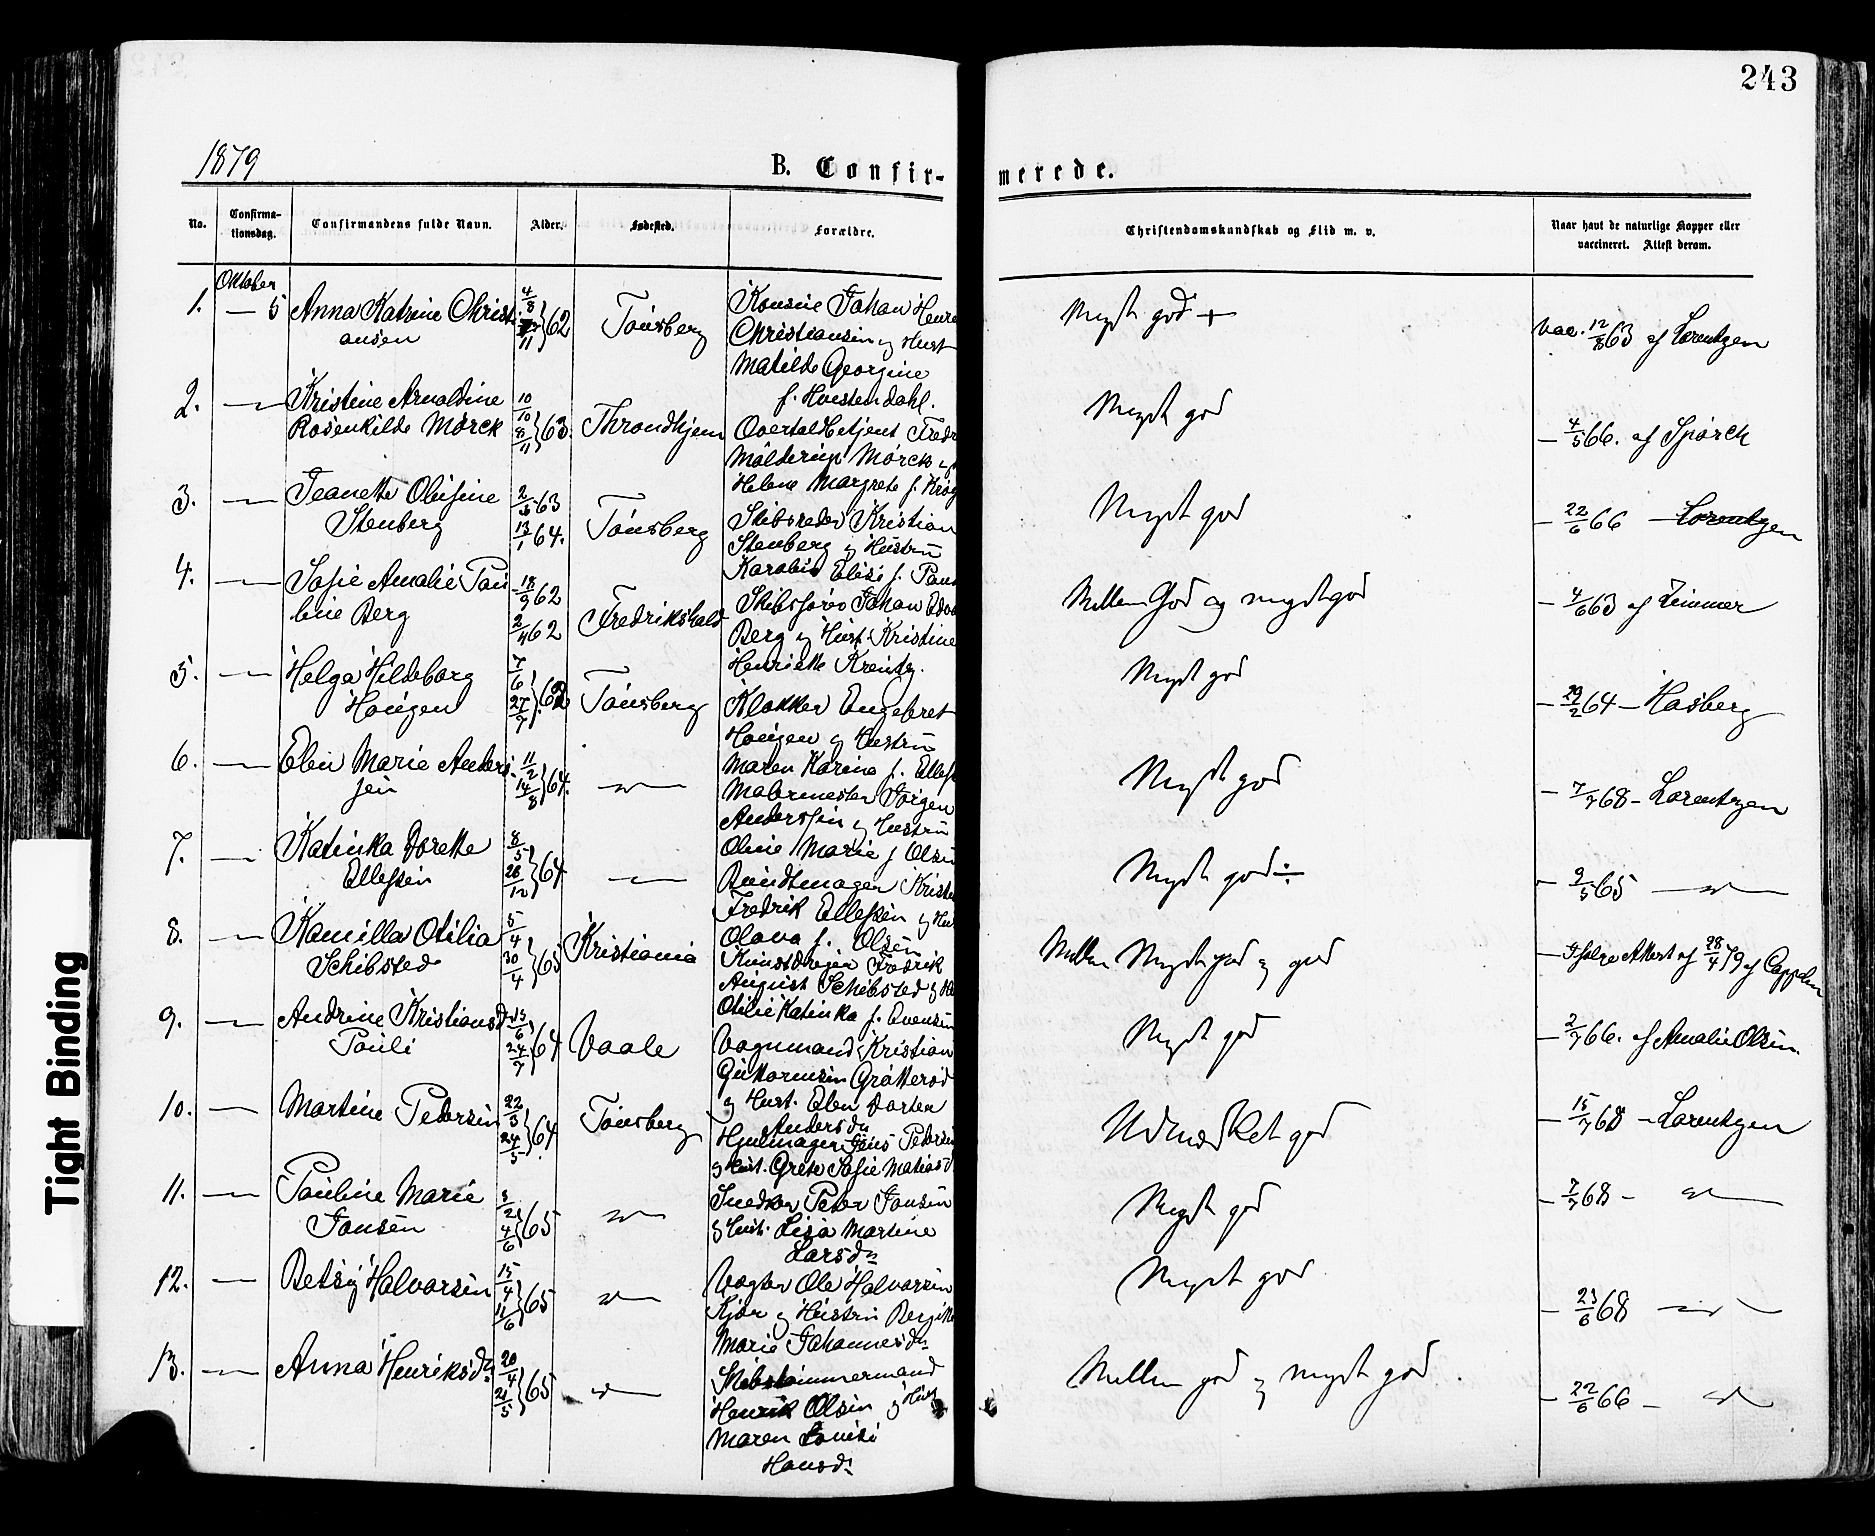 243
1879
B. Confir-
merede.
No.
Confirma-
tionsdag.
Confirmandens fulde Navn.
Alder.
Fødested.
Forældre.
Christendomskundskab og Flid m. v.
Naar havt de naturlige Kopper eller
vaccineret. Attest derom.
Oktober
1. — 5 Anna Katrine Christi
ansen
4/8
11 } 62
Tønsberg
Johan Henr
Christiansen og Hust
Matilde Georgine
f. Hvistendahl.
Meget god +
Vac. 12/8 63 af Lorentzen
2. — Kristine Arnoldine
Rosenkilde Mørck
10/10
8/11 } 63.
Throndhjem
Overtoldbetjent Fredr
Mølderup Mørck og
Helene Margrete f. Krog
Meget god
— 4/5 66. af Spørck
3. — Jeanette Olufine
Stenberg
2/ 63
13/1 64.
Tønsberg
Skibsreder Kristian
Stenberg og Hustru
Elise f. Paus
Meget god
— 22/6 66 — Lorentzen
4. — Sofie Amalie Pau
line Berg
18/9 62
2/4 62
Fredrikshald
Skibsfører Johan Edva
Berg og Hust. Kristine
Henriette
Mellem God og megetgod
— 4/6 63 af Zimmer
5. — Helga Hildeborg
Hougen
7/6
27/7 } 62
Tønsberg
Klokker Engebret
Hougen og Hustru
Maren Karine f. Ellefs
Meget god
— 29/2 64 — Hasberg
6. — Elen Marie Anders
sen
11/2
14/8 } 64.
— " —
Malermester Jørgen
Anderssen og Hustru
Oline Marie f Olsen
Meget god
— 7/7 68 — Lorentzen
7. — Katinka Dorette
Ellefsen
8/5
26/12 } 64
— " —
Buntmager Kristen
Fredrik Ellefsen og Hus
Olava f. Olsen
Meget god ÷
— 9/5 65 — " —
8. — Kamilla Otilia
Schibsted
5/4
30/4 } 65
Kristiania
Kunstdreier Fredrik
August Schibsted og Hu
Otilie Katinka f. Evensen
Mellem Megetgod og god
— Ifølge Attest af 28/4 79 af Cappelen
9. — Andrine Kristiansd
Pauli
15/6
24/7 } 64
Vaale
Vognmand Kristian
Guttormsen Grøtterød
og Hust. Elen Dorten
Andersdn
Meget god
— 2/7 66. af Amalie Olsen.
10. — Martine Pedersen
22/3
24/5 } 64
Tønsberg
Hjulmager Jens Pedersen
og Hust. Grete Sofie Matiasd
Udmærket god
— 15/7 68 — Lorentzen
11. — Pauline Marie
Jansen
3/2
4/6 } 65
— " —
Snedker Peter Jansen
og Hust. Lisa Martine
Larsdn
Meget god
— 7/7 68 — " —
12. — Betsy Halvorsen
15/4
11/6 } 65
— " —
Vægter Ole Halvorsen
Kjær og Hustru Bergitte
Marie Johannesdn
Meget god
— 23/6 68 — " —
13. — Anna Henriksdn
20/4
21/5 } 65
— " —
Skibstømmermand
Henrik Olsen og Hust
Maren Louise
Hansdn
Mellem god og meget god
— 22/6 66 — " —
Tight Binding